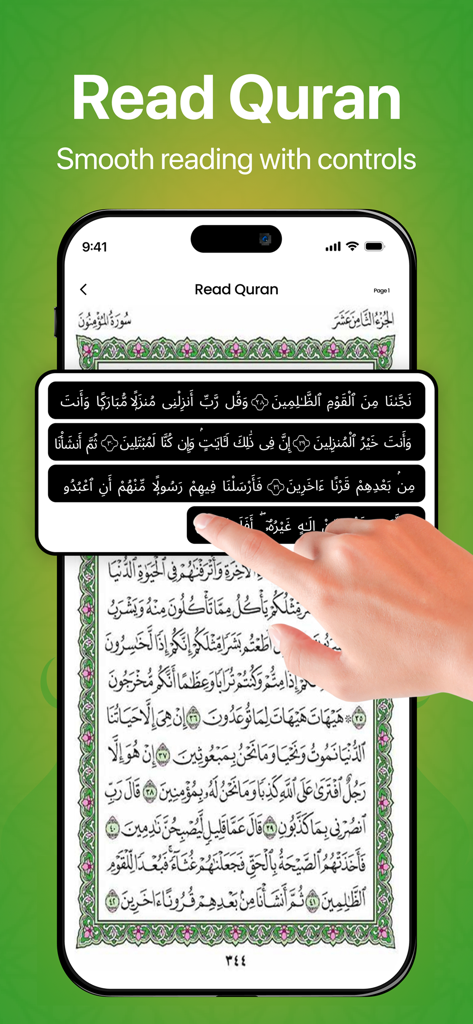 Read Quran
Smooth reading with controls
9:41
Read Quran
Page 1
سُورَةُ المُؤْمِنُونَ
الجُزْءُ الثَّامِنَ عَشَرَ
نَجَّىٰنَا مِنَ ٱلْقَوْمِ ٱلظَّـٰلِمِينَ ۝٢٨ وَقُل رَّبِّ أَنزِلْنِى مُنزَلًا مُّبَارَكًا وَأَنتَ
وَأَنتَ خَيْرُ ٱلْمُنزِلِينَ ۝ إِنَّ فِى ذَٰلِكَ لَـَٔايَـٰتٍ وَإِن كُنَّا لَمُبْتَلِينَ ۝ ثُمَّ أَنشَأْنَا
مِنۢ بَعْدِهِمْ قَرْنًا ءَاخَرِينَ ۝ فَأَرْسَلْنَا فِيهِمْ رَسُولًا مِّنْهُمْ أَنِ ٱعْبُدُو
إِلَـٰهٍ غَيْرُهُۥٓ ۖ أَفَلَ
ٱلْأَخِرَةِ وَأَتْرَفْنَٰهُمْ فِى ٱلْحَيَوٰةِ ٱلدُّنْيَا
مِّثْلُكُمْ يَأْكُلُ مِمَّا تَأْكُلُونَ مِنْهُ وَيَشْرَبُ
أَطَعْتُم بَشَرًا مِّثْلَكُمْ إِنَّكُمْ إِذًا لَّخَٰسِرُونَ
إِذَا مِتُّمْ وَكُنتُمْ تُرَابًا وَعِظَٰمًا أَنَّكُم مُّخْرَجُونَ
۝٣٥ هَيْهَاتَ هَيْهَاتَ لِمَا تُوعَدُونَ ۝٣٦ إِنْ هِىَ إِلَّا حَيَاتُنَا
ٱلدُّنْيَا نَمُوتُ وَنَحْيَا وَمَا نَحْنُ بِمَبْعُوثِينَ ۝٣٧ إِنْ هُوَ إِلَّا
رَجُلٌ ٱفْتَرَىٰ عَلَى ٱللَّهِ كَذِبًا وَمَا نَحْنُ لَهُۥ بِمُؤْمِنِينَ ۝٣٨ قَالَ رَبِّ
ٱنصُرْنِى بِمَا كَذَّبُونِ ۝٣٩ قَالَ عَمَّا قَلِيلٍ لَّيُصْبِحُنَّ نَٰدِمِينَ ۝٤٠
فَأَخَذَتْهُمُ ٱلصَّيْحَةُ بِٱلْحَقِّ فَجَعَلْنَٰهُمْ غُثَآءً ۚ فَبُعْدًا لِّلْقَوْمِ
ٱلظَّٰلِمِينَ ۝٤١ ثُمَّ أَنشَأْنَا مِنۢ بَعْدِهِمْ قُرُونًا ءَاخَرِينَ ۝٤٢
٣٤٤